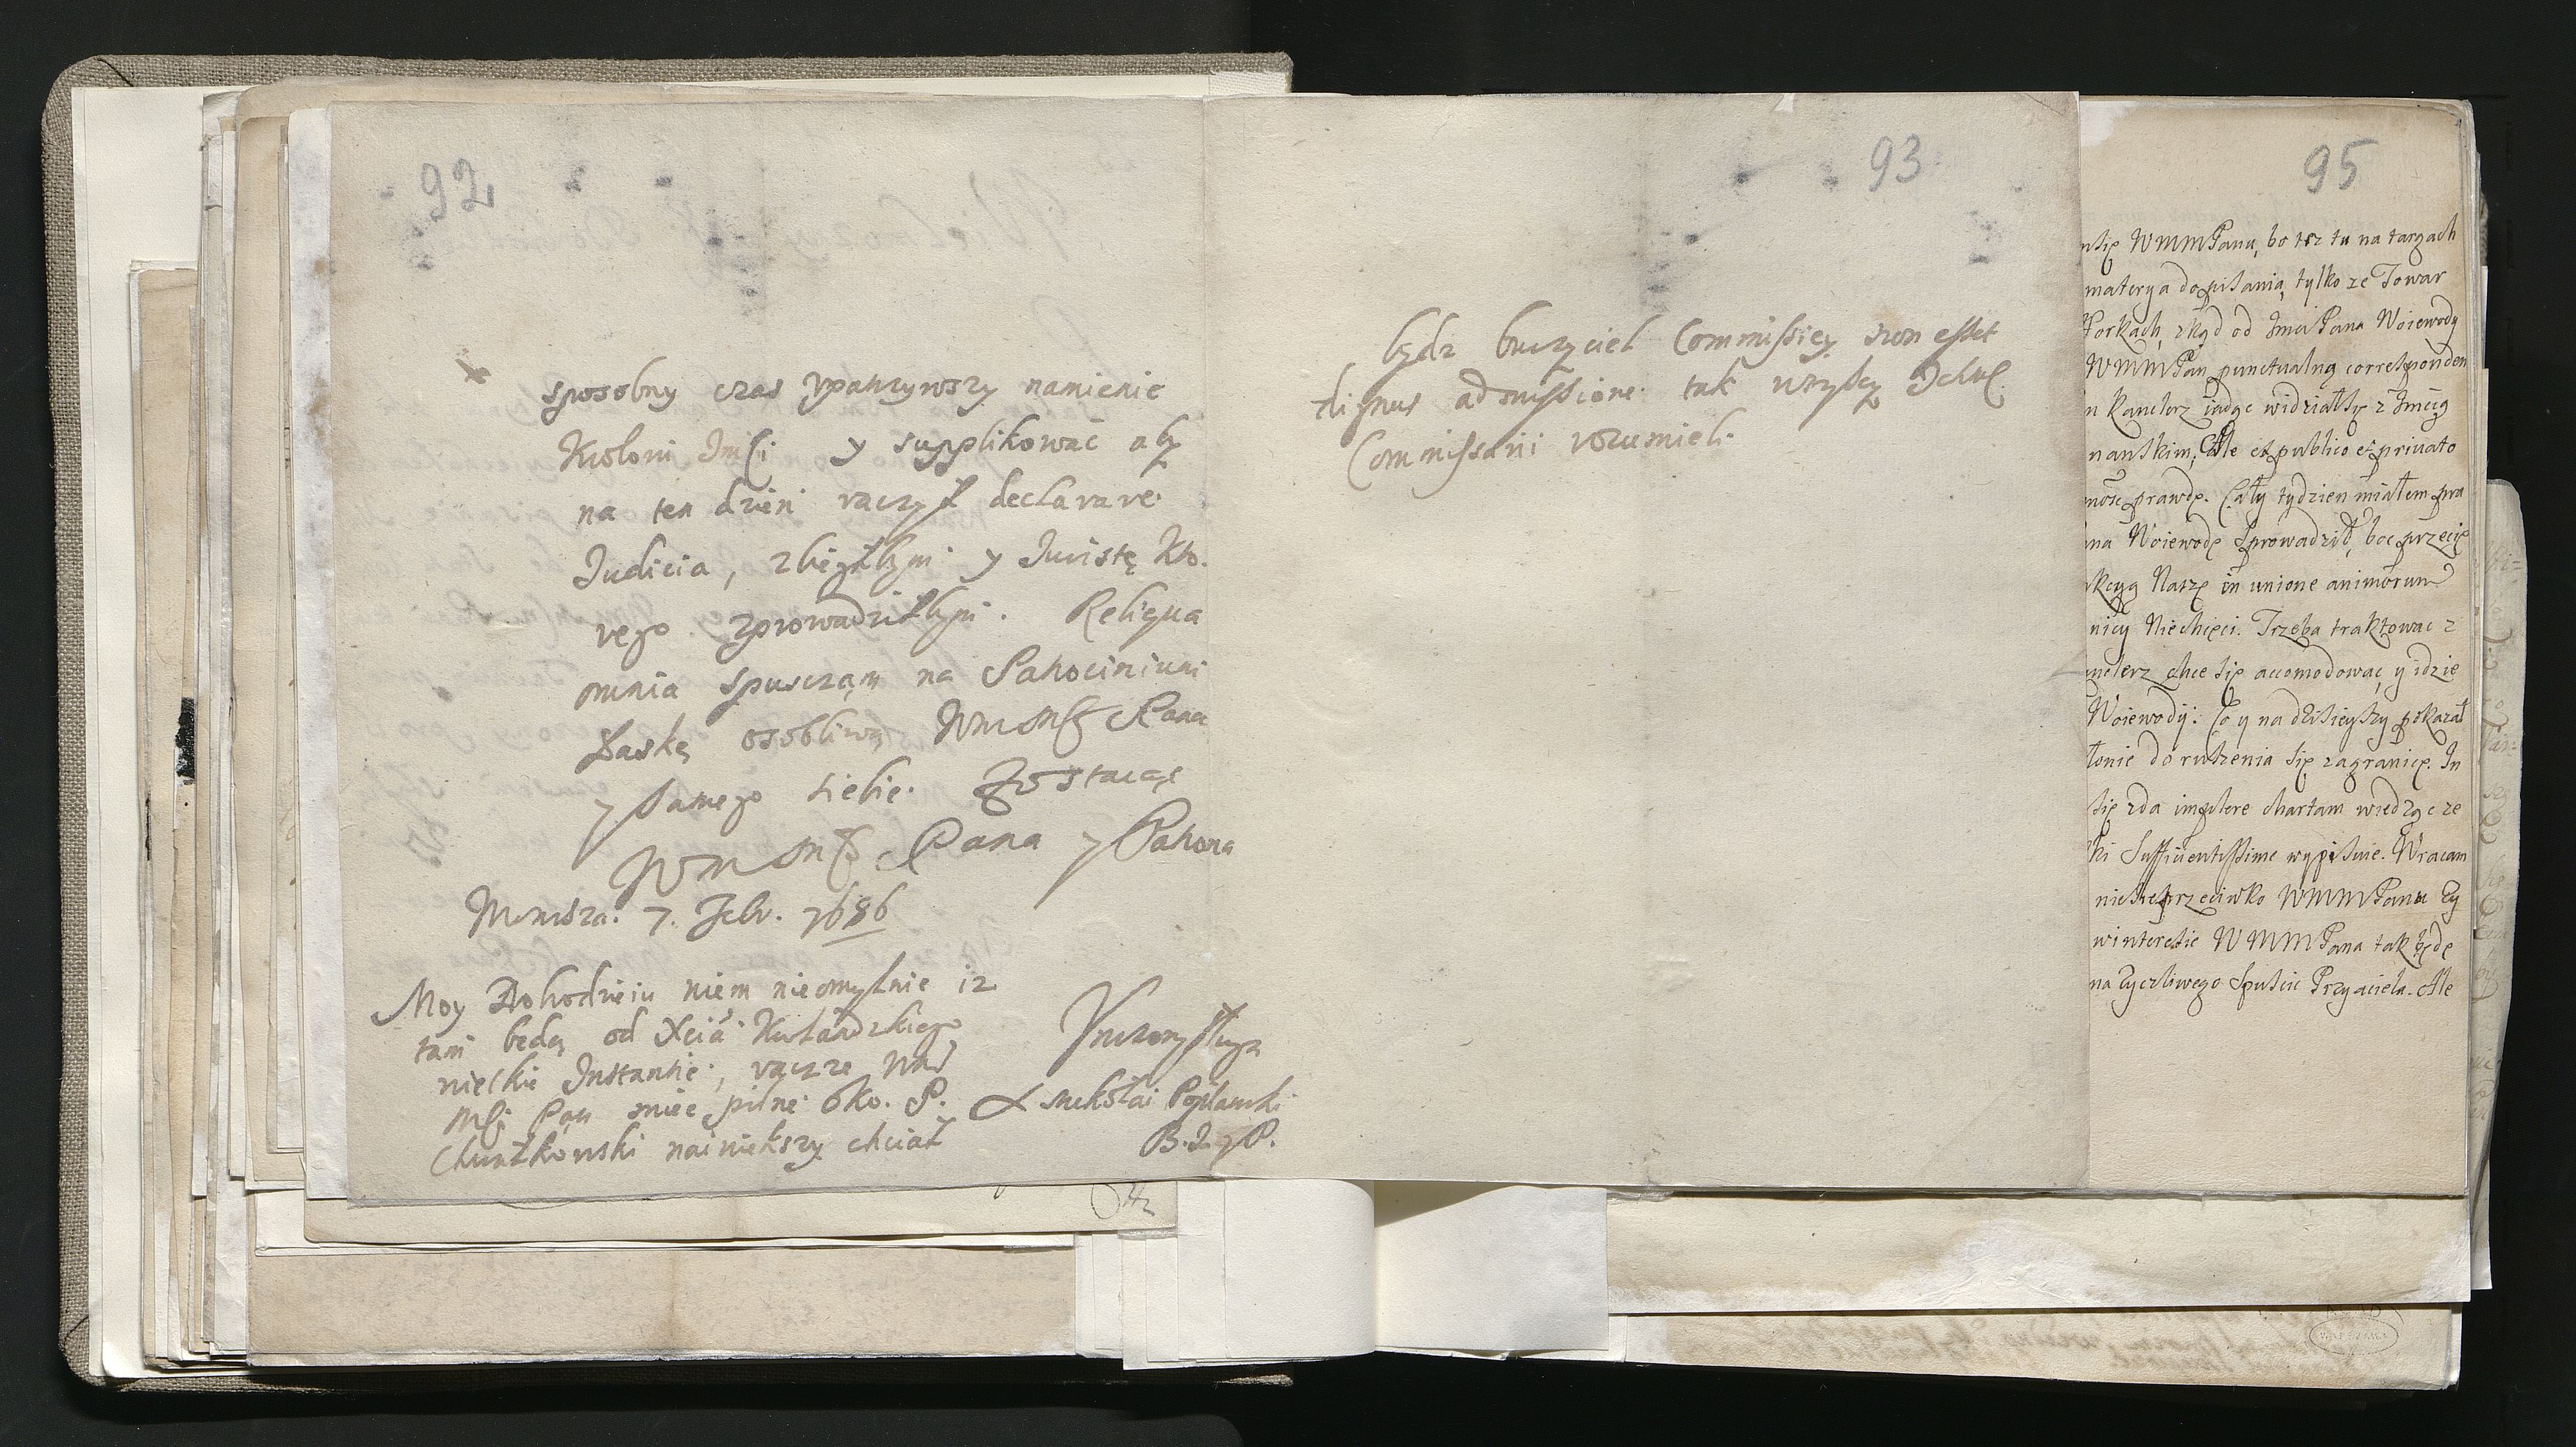 92
sposobny czas vpatrzywszy namienic
Krolowi Jmſci y supplikowac aby
na ten dzien raczył declarare
Judicia, zbiegłbym y Juristę kto-
rego zprowadziłbym. Reliqua
omnia spusczam na Patrocinium
Łaskę osobliwą WmMſ Pana
y samego siebie. Zostaiąc
WmMſ Pana y Patrona
7. Febr. 1686
Moy Dobrodzieiu wiem nieomylnie iz
tam bedą od Xcia Kurlandzkiego
wielkie Instantie, racz ze WM
Mſci Pan miec pilne oko. P.
naiwiekszy chciał
Vnizony sługa
Mikołai Popławski
B. I. y P.
93
Commissiey non esset
dignus admissione tak wszyscy Ichmſ
Commissarii rozumieli.
95
się WMMPanu, bo tez tu na targach
materya do pisania, tylko ze Towar
zkąd od Jmci Pana Woiewody
WMMPan punctualną corresponden
n Kanclerz iadąc widział się z Jmcią
nanskim, Ale et publico et privato
prawdę. Cały tydzien miałem pra
na Woiewodę sprowadził, boc przecię
kcyą Naszę in unione animorum
nicy Niechęci. Trzeba traktowac z
nclerz chce się accomodowac, y idzie
Woiewody: Co y na dzisieyszy pokazał
łonie do ruszenia się zagranicę. In
się zda implere chartam wiedząc ze
ki sufficientissime wypisuie. Wracam
przeciwko WMMPanu Zy
w interesie WMMPana tak będę
na Zyczliwego spuscic Przyaciela. Ale